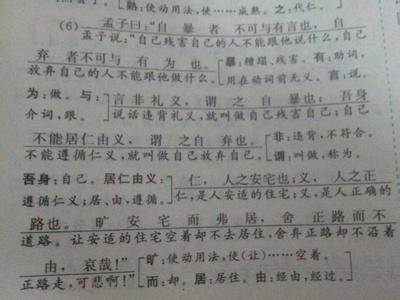 熟:使动用法,使……成熟。之:代仁。
(6) 孟子曰:“自 暴 者 不可与有言也, 自
孟子说:“自己残害自己的人不能跟他说什么,自己
弃 者不可与 有 为 也。 暴:糟蹋、残害。有:助词,
放弃自己的人不能跟他做什么。 用在动词前无义。言:说。
为:做。与: 言非礼义,谓 之自 暴也;吾身
介词,跟。 说话违背礼义,就叫做自己残害自己;自己
不能居仁由义,谓 之自 弃也。 非:违背,不符合。
不能遵循仁义,就叫做自己放弃自己。 谓:叫做,称为。
吾身:自己。居仁由义: 仁,人之安宅也;义,人之正
遵循仁义;居、由,遵循。 仁,是人安适的住宅;义,是人正确的
路也。旷 安宅 而弗居,舍 正路而不
道路。让安适的住宅空着却不去居住,舍弃正路却不沿着
由,哀哉!” 旷:使动用法,使(让)……空着。
正路走,可悲啊!” 而:却。居:居住。由:经由,经过。